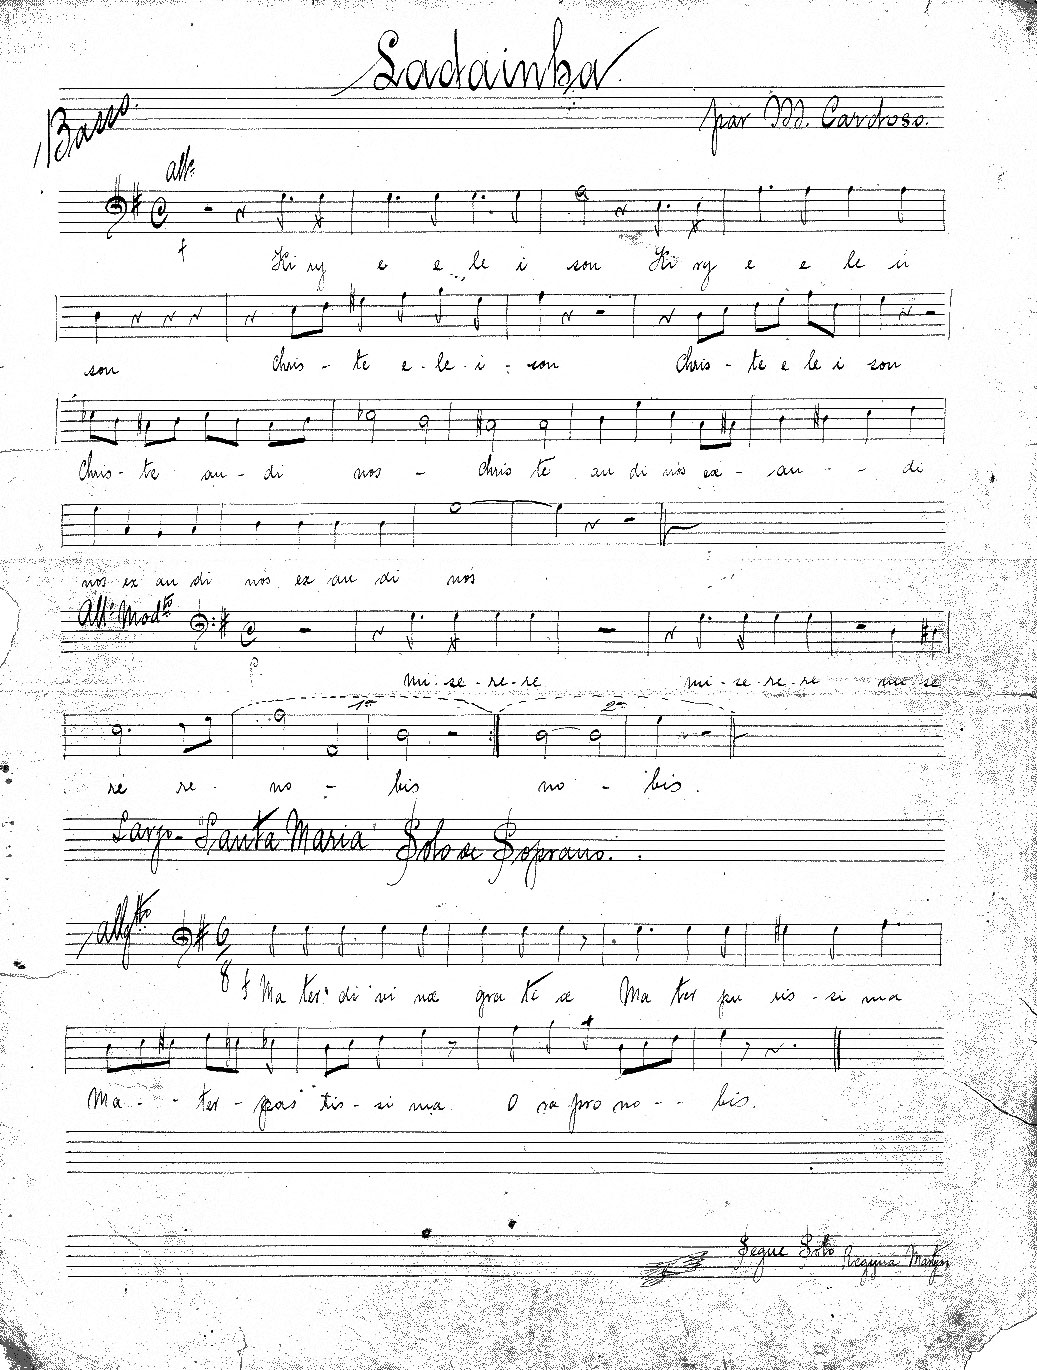 Ladainha.
Basso.
por M. Cardoso.
Allo
f
Ki ry e e le i son Ki ry e e le i
son Chris - te e - le - i - son Chris - te e le i son
Chris - te au - di nos - Chris te au di nos ex - au - - di
nos ex au di nos ex au di nos
Allo Modto
p
mi - se - re - re mi - se - re - re mi - se
re re no - bis no - bis.
1a 2a
Largo - "Santa Maria" Solo de Soprano.
Allgtto
6
8
f Ma ter di vi næ gra ti æ Ma ter pu ris - si ma
Ma - - ter - cas tis - si ma O ra pro no - - bis.
Segue Solo Regina Martyr